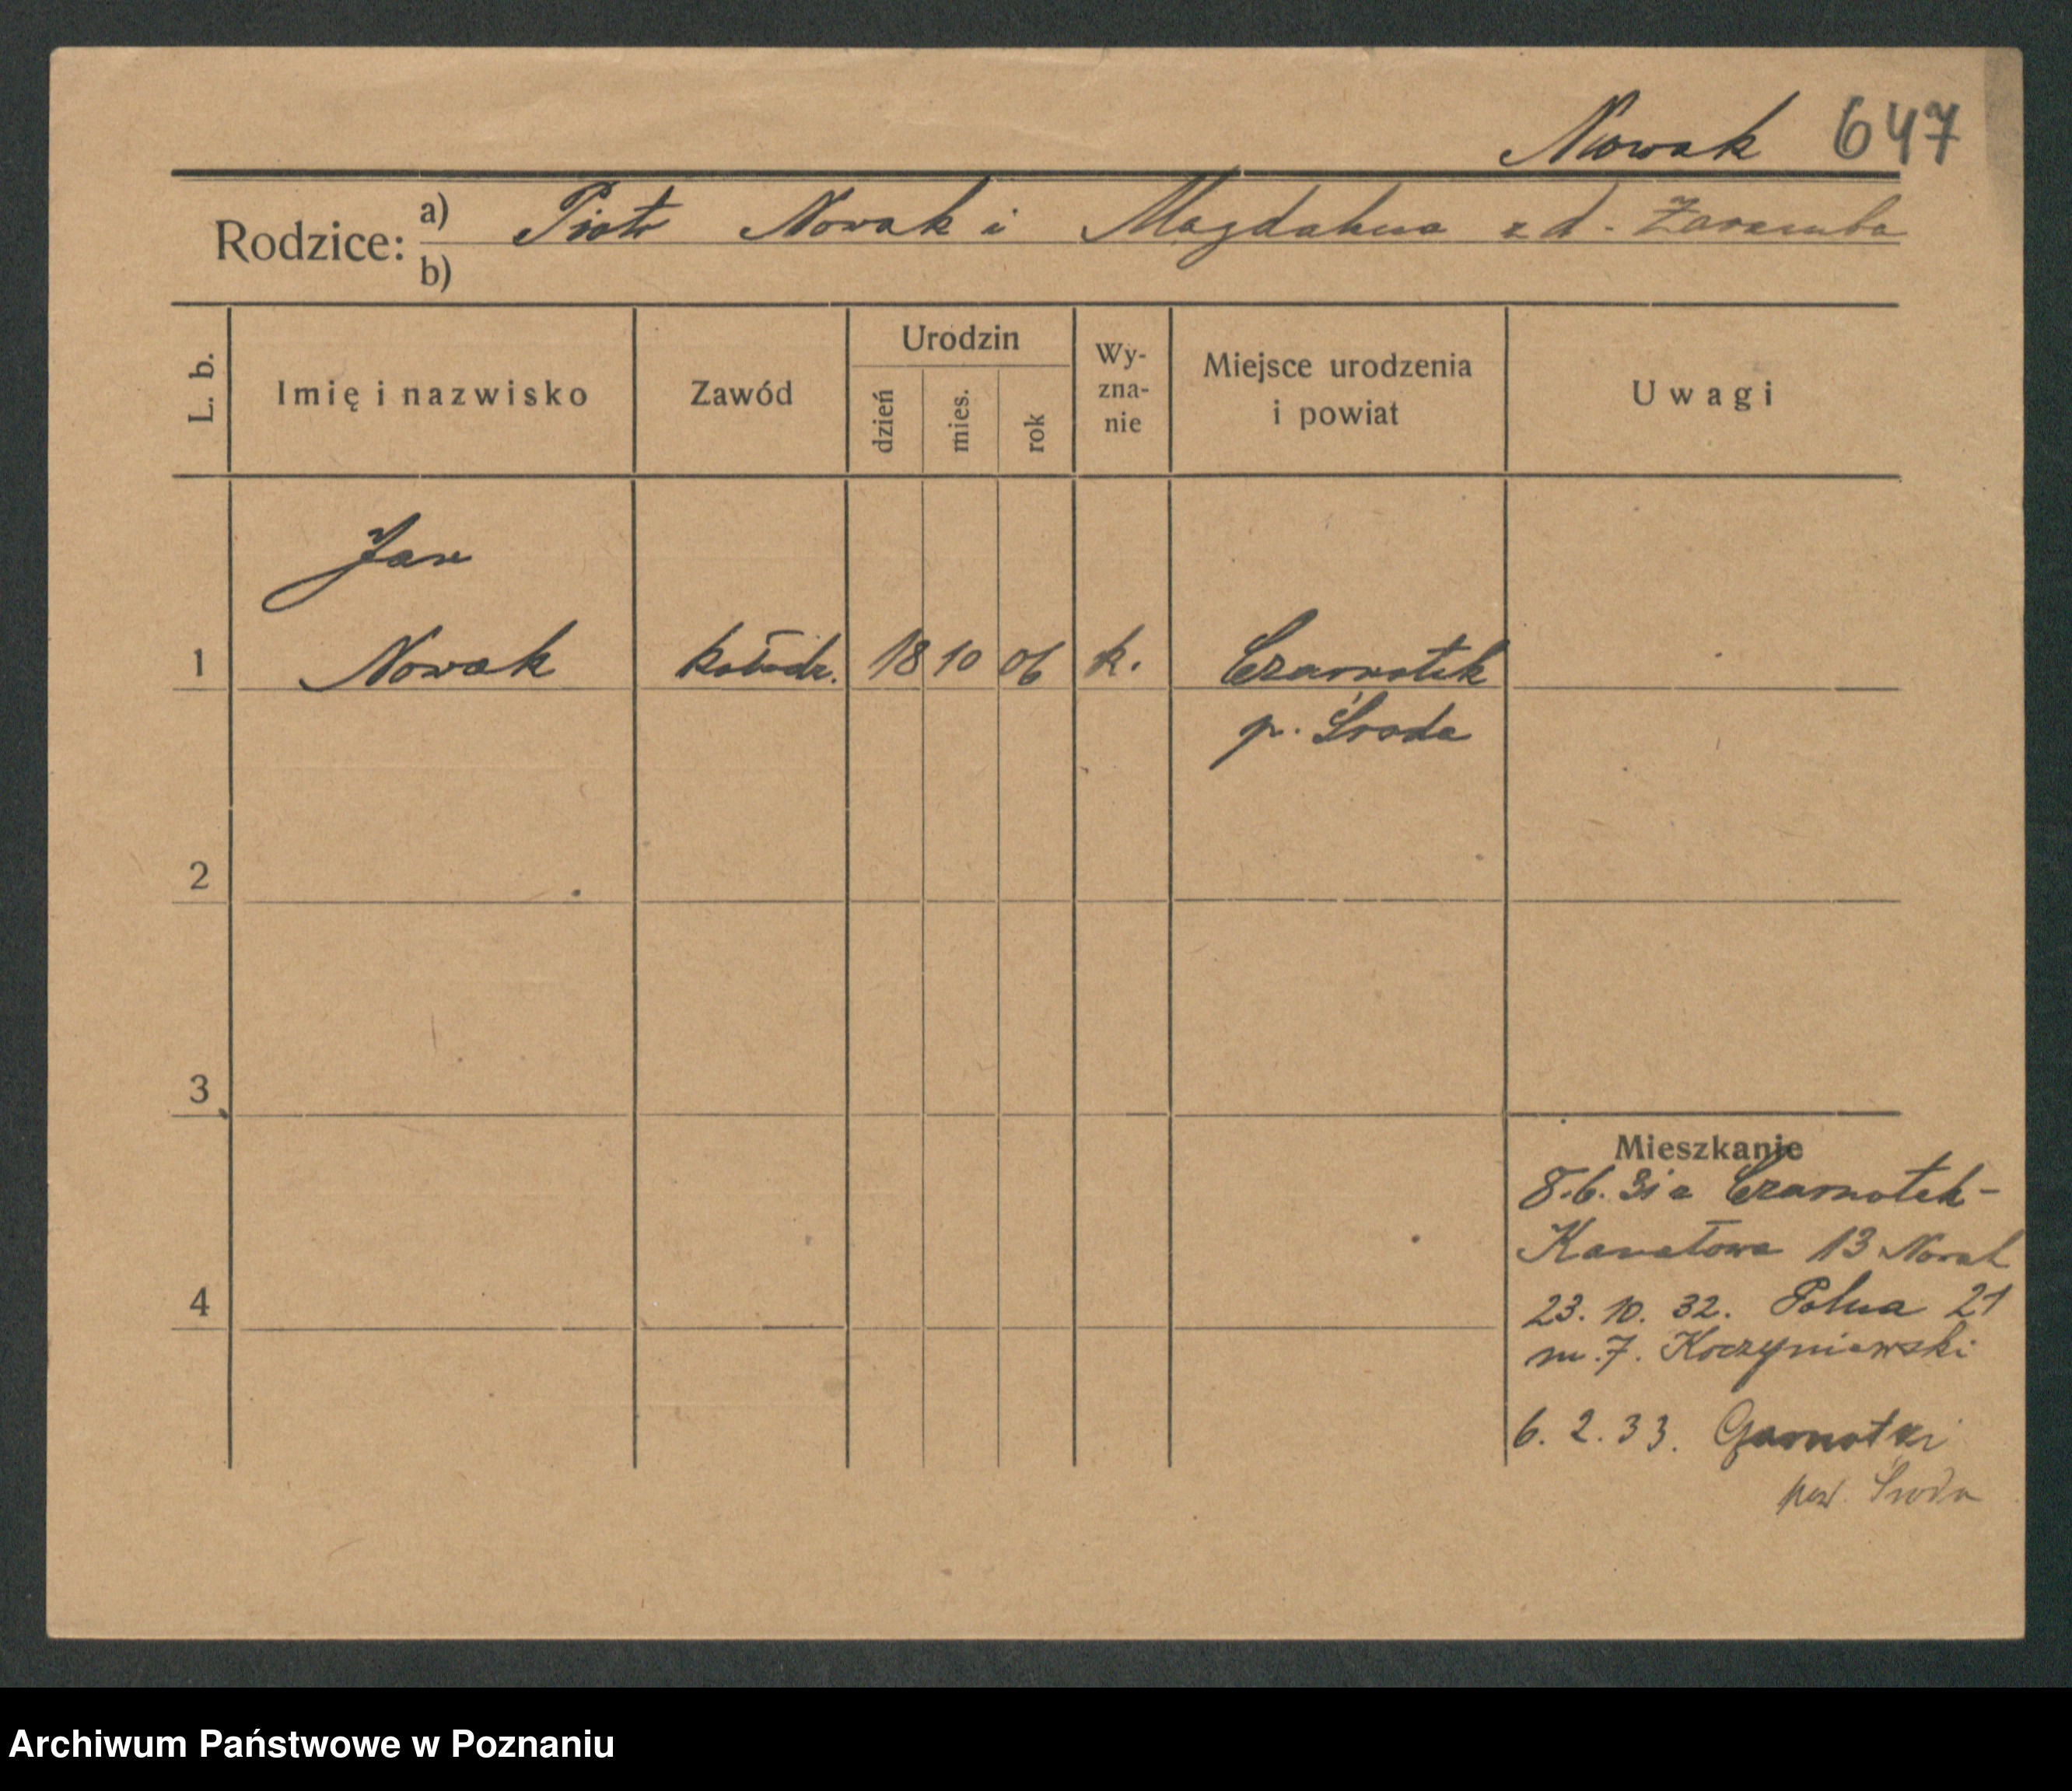 Nowak 647
Rodzice: a) Piotr Nowak i Magdalena z d. Zaremba
b)
L. b. Imię i nazwisko Zawód Urodzin dzień mies. rok Wyznanie Miejsce urodzenia i powiat Uwagi
Jan
1 Nowak kołodz. 18 10 06 k. Czarnotek
p. Środa
2
3
Mieszkanie
8.6.31 z Czarnotek-
Kanałowa 13 Nowak
4
23.10.32. Polna 21
m.7. Koczyniewski
6.2.33. Czarnotki
pow. Środa
Archiwum Państwowe w Poznaniu